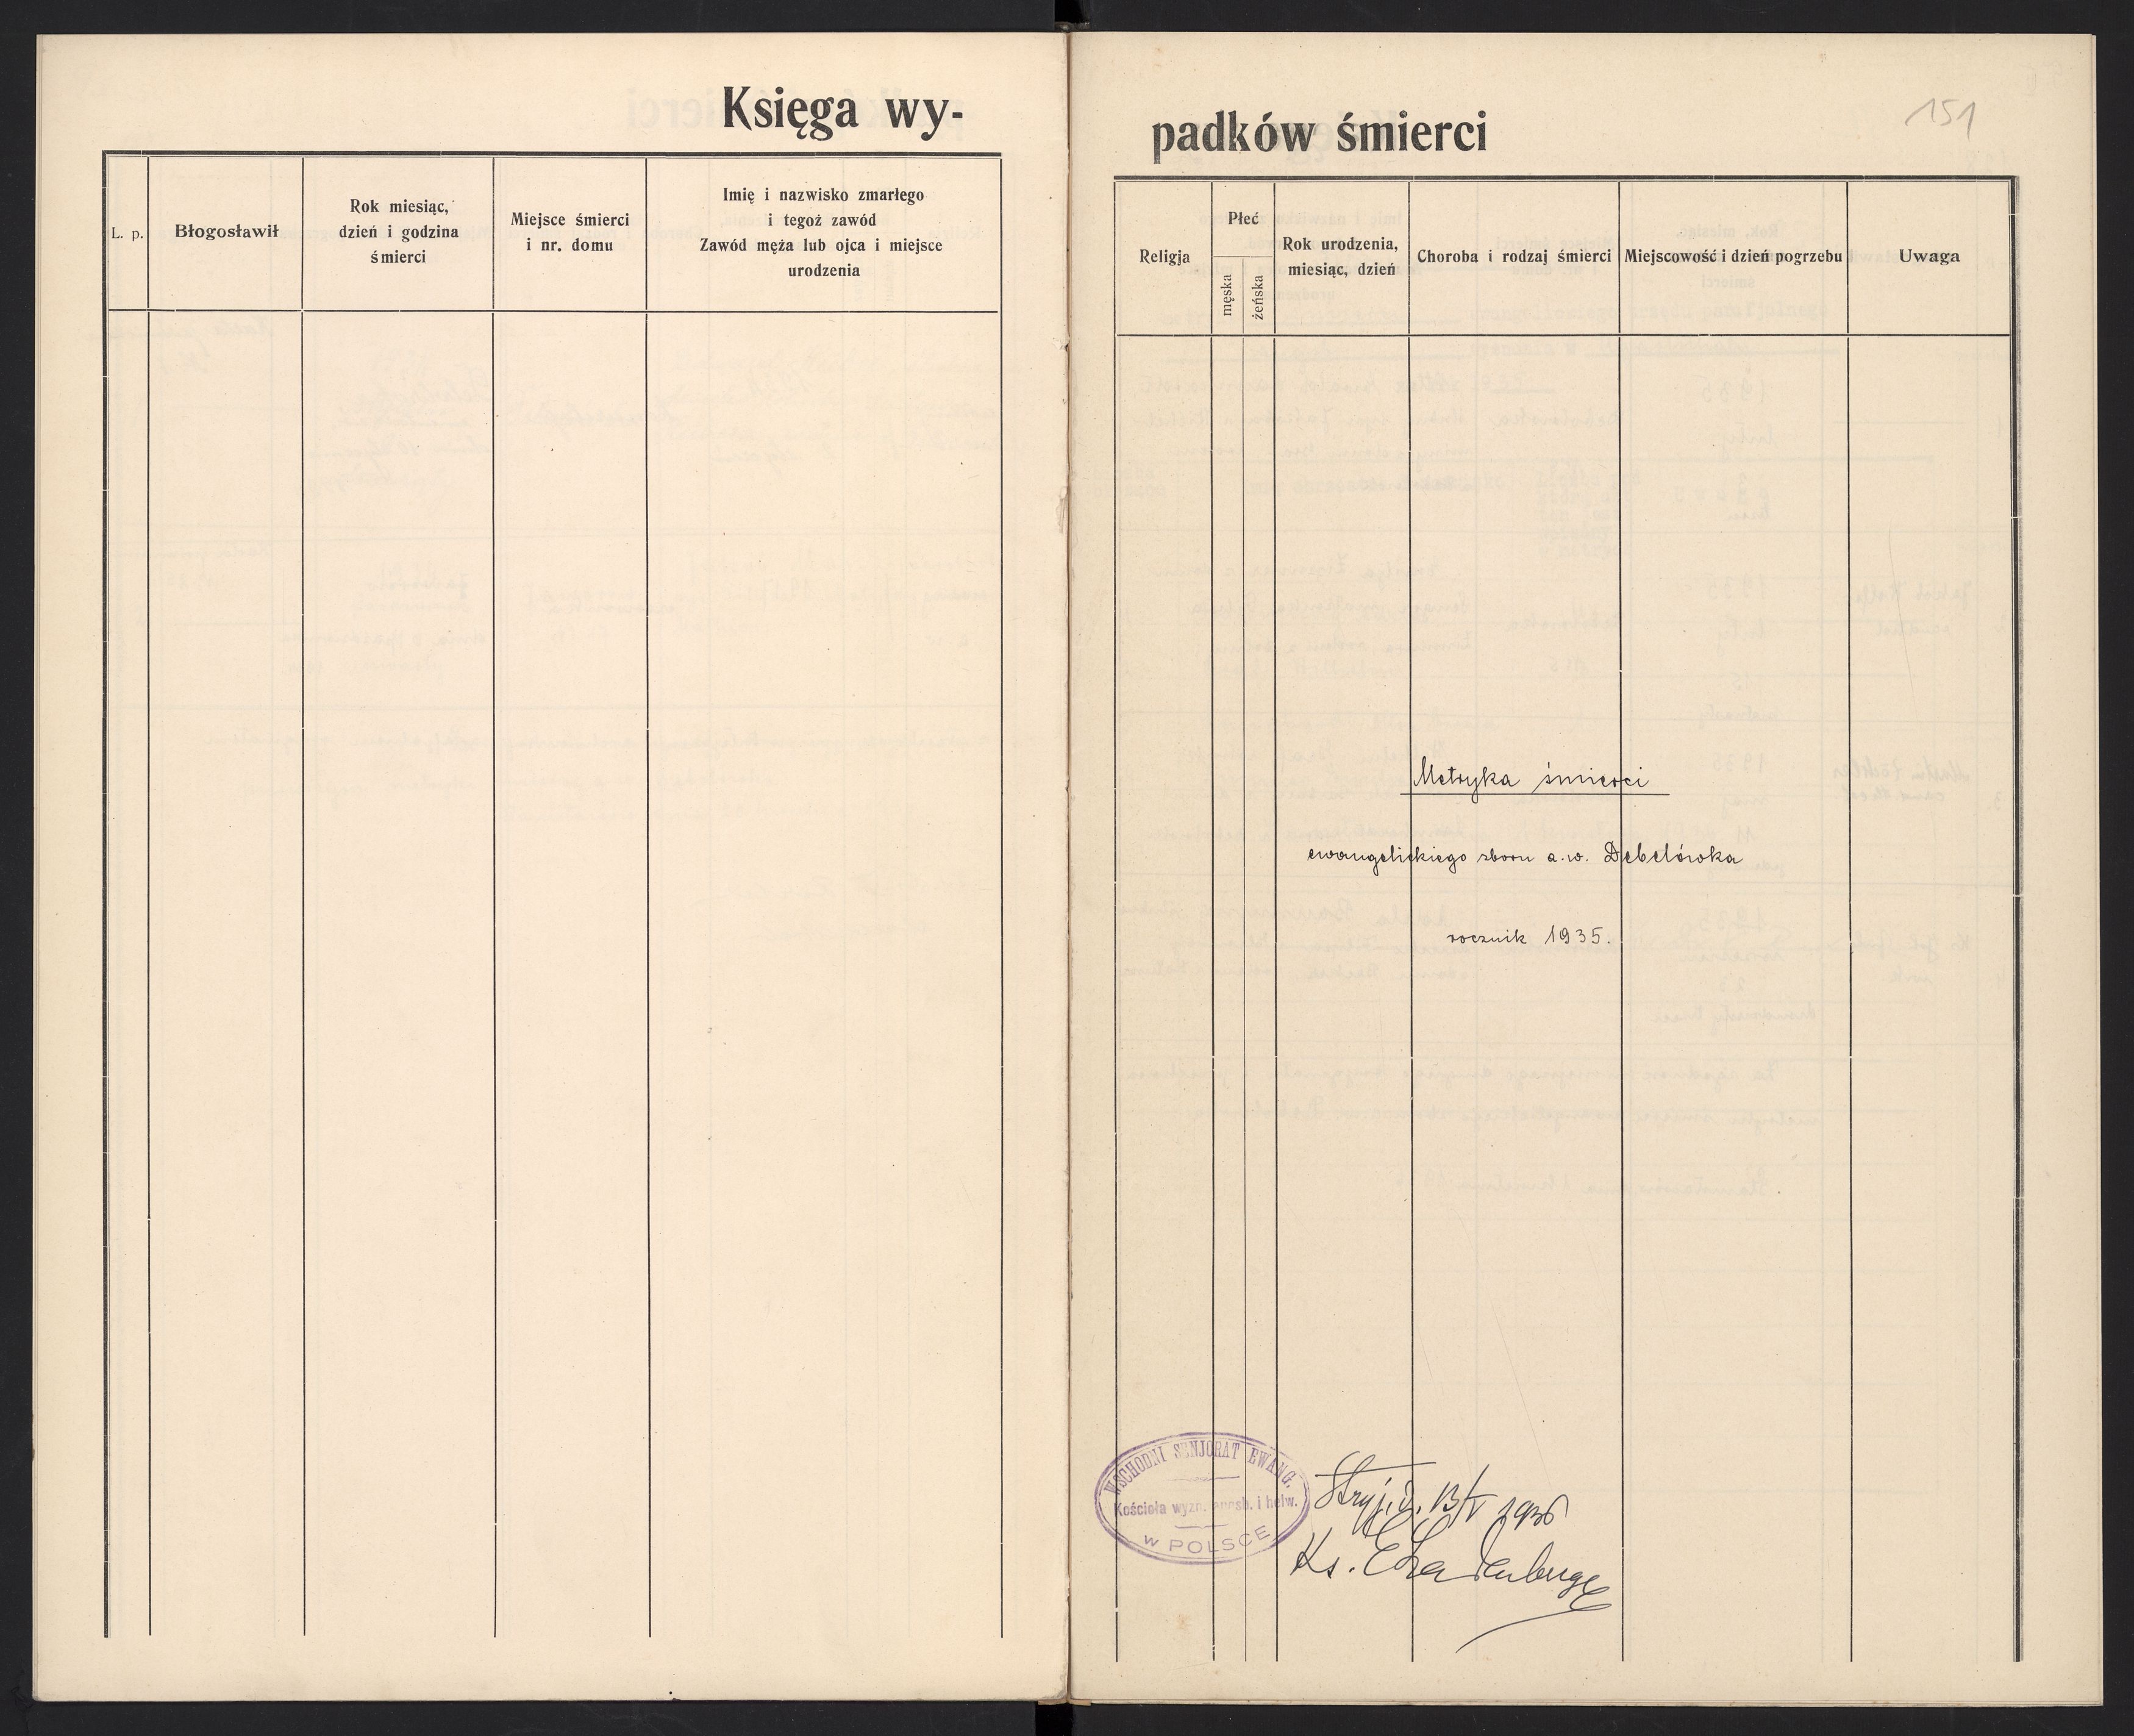 Księga wy-
L. p.
Błogosławił
Rok miesiąc,
dzień i godzina
śmierci
Miejsce śmierci
i nr. domu
Imię i nazwisko zmarłego
i tegoż zawód
Zawód męża lub ojca i miejsce
urodzenia
padków śmierci
151
Religja
Płeć
męska
żeńska
Rok urodzenia,
miesiąc, dzień
Choroba i rodzaj śmierci
Miejscowość i dzień pogrzebu
Uwaga
Metryka śmierci
ewangelickiego zboru a.w. Debelówka
rocznik 1935.
WSCHODNI SENJORAT EWANG.
Kościoła wyzn. augsb. i helw.
w POLSCE
Stryj, d. 13/V 1936
Ks.